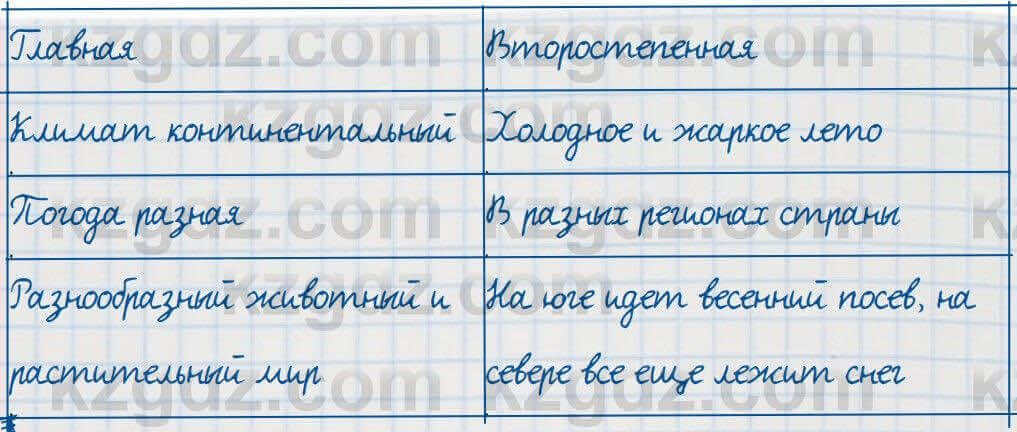 Главная
Второстепенная
Климат континентальный
Холодное и жаркое лето
Погода разная
В разных регионах страны
Разнообразный животный и
растительный мир
На юге идет весенний посев, на
севере все еще лежит снег
kzgdz.com
kzgdz.com
kzgdz.com
kzgdz.com
kzgdz.com
kzgdz.com
kzgdz.com
kzgdz.com